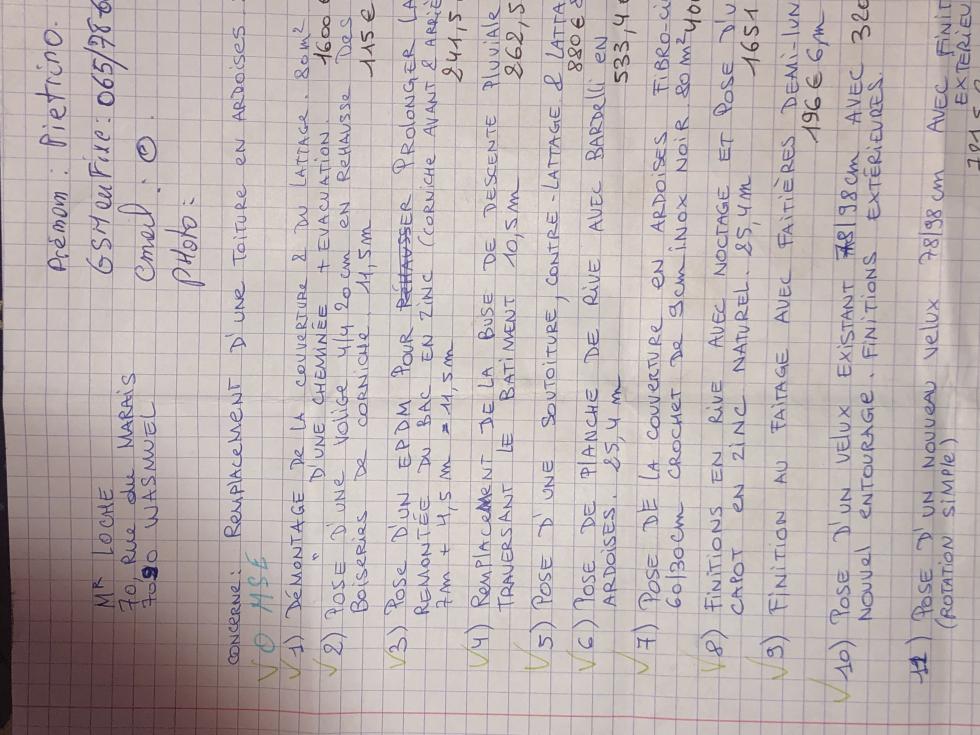 Prénom : Pietrino.
GSM ou Fixe : 065/78 6
Email :
PHoto :
MR LOCHE
70, Rue du MARAIS
7090 WASMUEL
CONCERNE: REMPLACEMENT D'UNE TOITURE EN ARDOISES :
O MSE
1) DÉMONTAGE DE LA COUVERTURE & DU LATTAGE. 80m²
" D'UNE CHEMINÉE + EVACUATION. 1600 €
2) POSE D'UNE VOLIGE 4/4 20cm EN REHAUSSE DES
BOISERIES DE CORNICHE. 11,5m 115 €
3) POSE D'UN EPDM POUR REHAUSSER PROLONGER LA
REMONTÉE DU BAC EN ZINC (CORNICHE AVANT & ARRIÈ
7m + 4,5m = 11,5m 241,5
4) REMPLACEMENT DE LA BUSE DE DESCENTE PLUVIALE
TRAVERSANT LE BATIMENT 10,5m 262,5
5) POSE D'UNE SOUTOITURE, CONTRE-LATTAGE & LATTA
880 €
6) POSE DE PLANCHE DE RIVE AVEC BARDELLI EN
ARDOISES. 25,4m 533,4
7) POSE DE LA COUVERTURE EN ARDOISES FIBRO-CI
60/30cm CROCHET DE 9cm INOX NOIR. 80m² 40
8) FINITIONS EN RIVE AVEC NOCTAGE ET POSE D'U
CAPOT EN ZINC NATUREL. 25,4m 1651
9) FINITION AU FAITAGE AVEC FAITIÈRES DEMI-LUN
196 € 6,m
10) POSE D'UN VELUX EXISTANT 78/98cm AVEC 320
NOUVEL ENTOURAGE. FINITIONS EXTÉRIEURES.
11) POSE D'UN NOUVEAU VELUX 78/98cm AVEC FINIT
(ROTATION SIMPLE) EXTERIEU